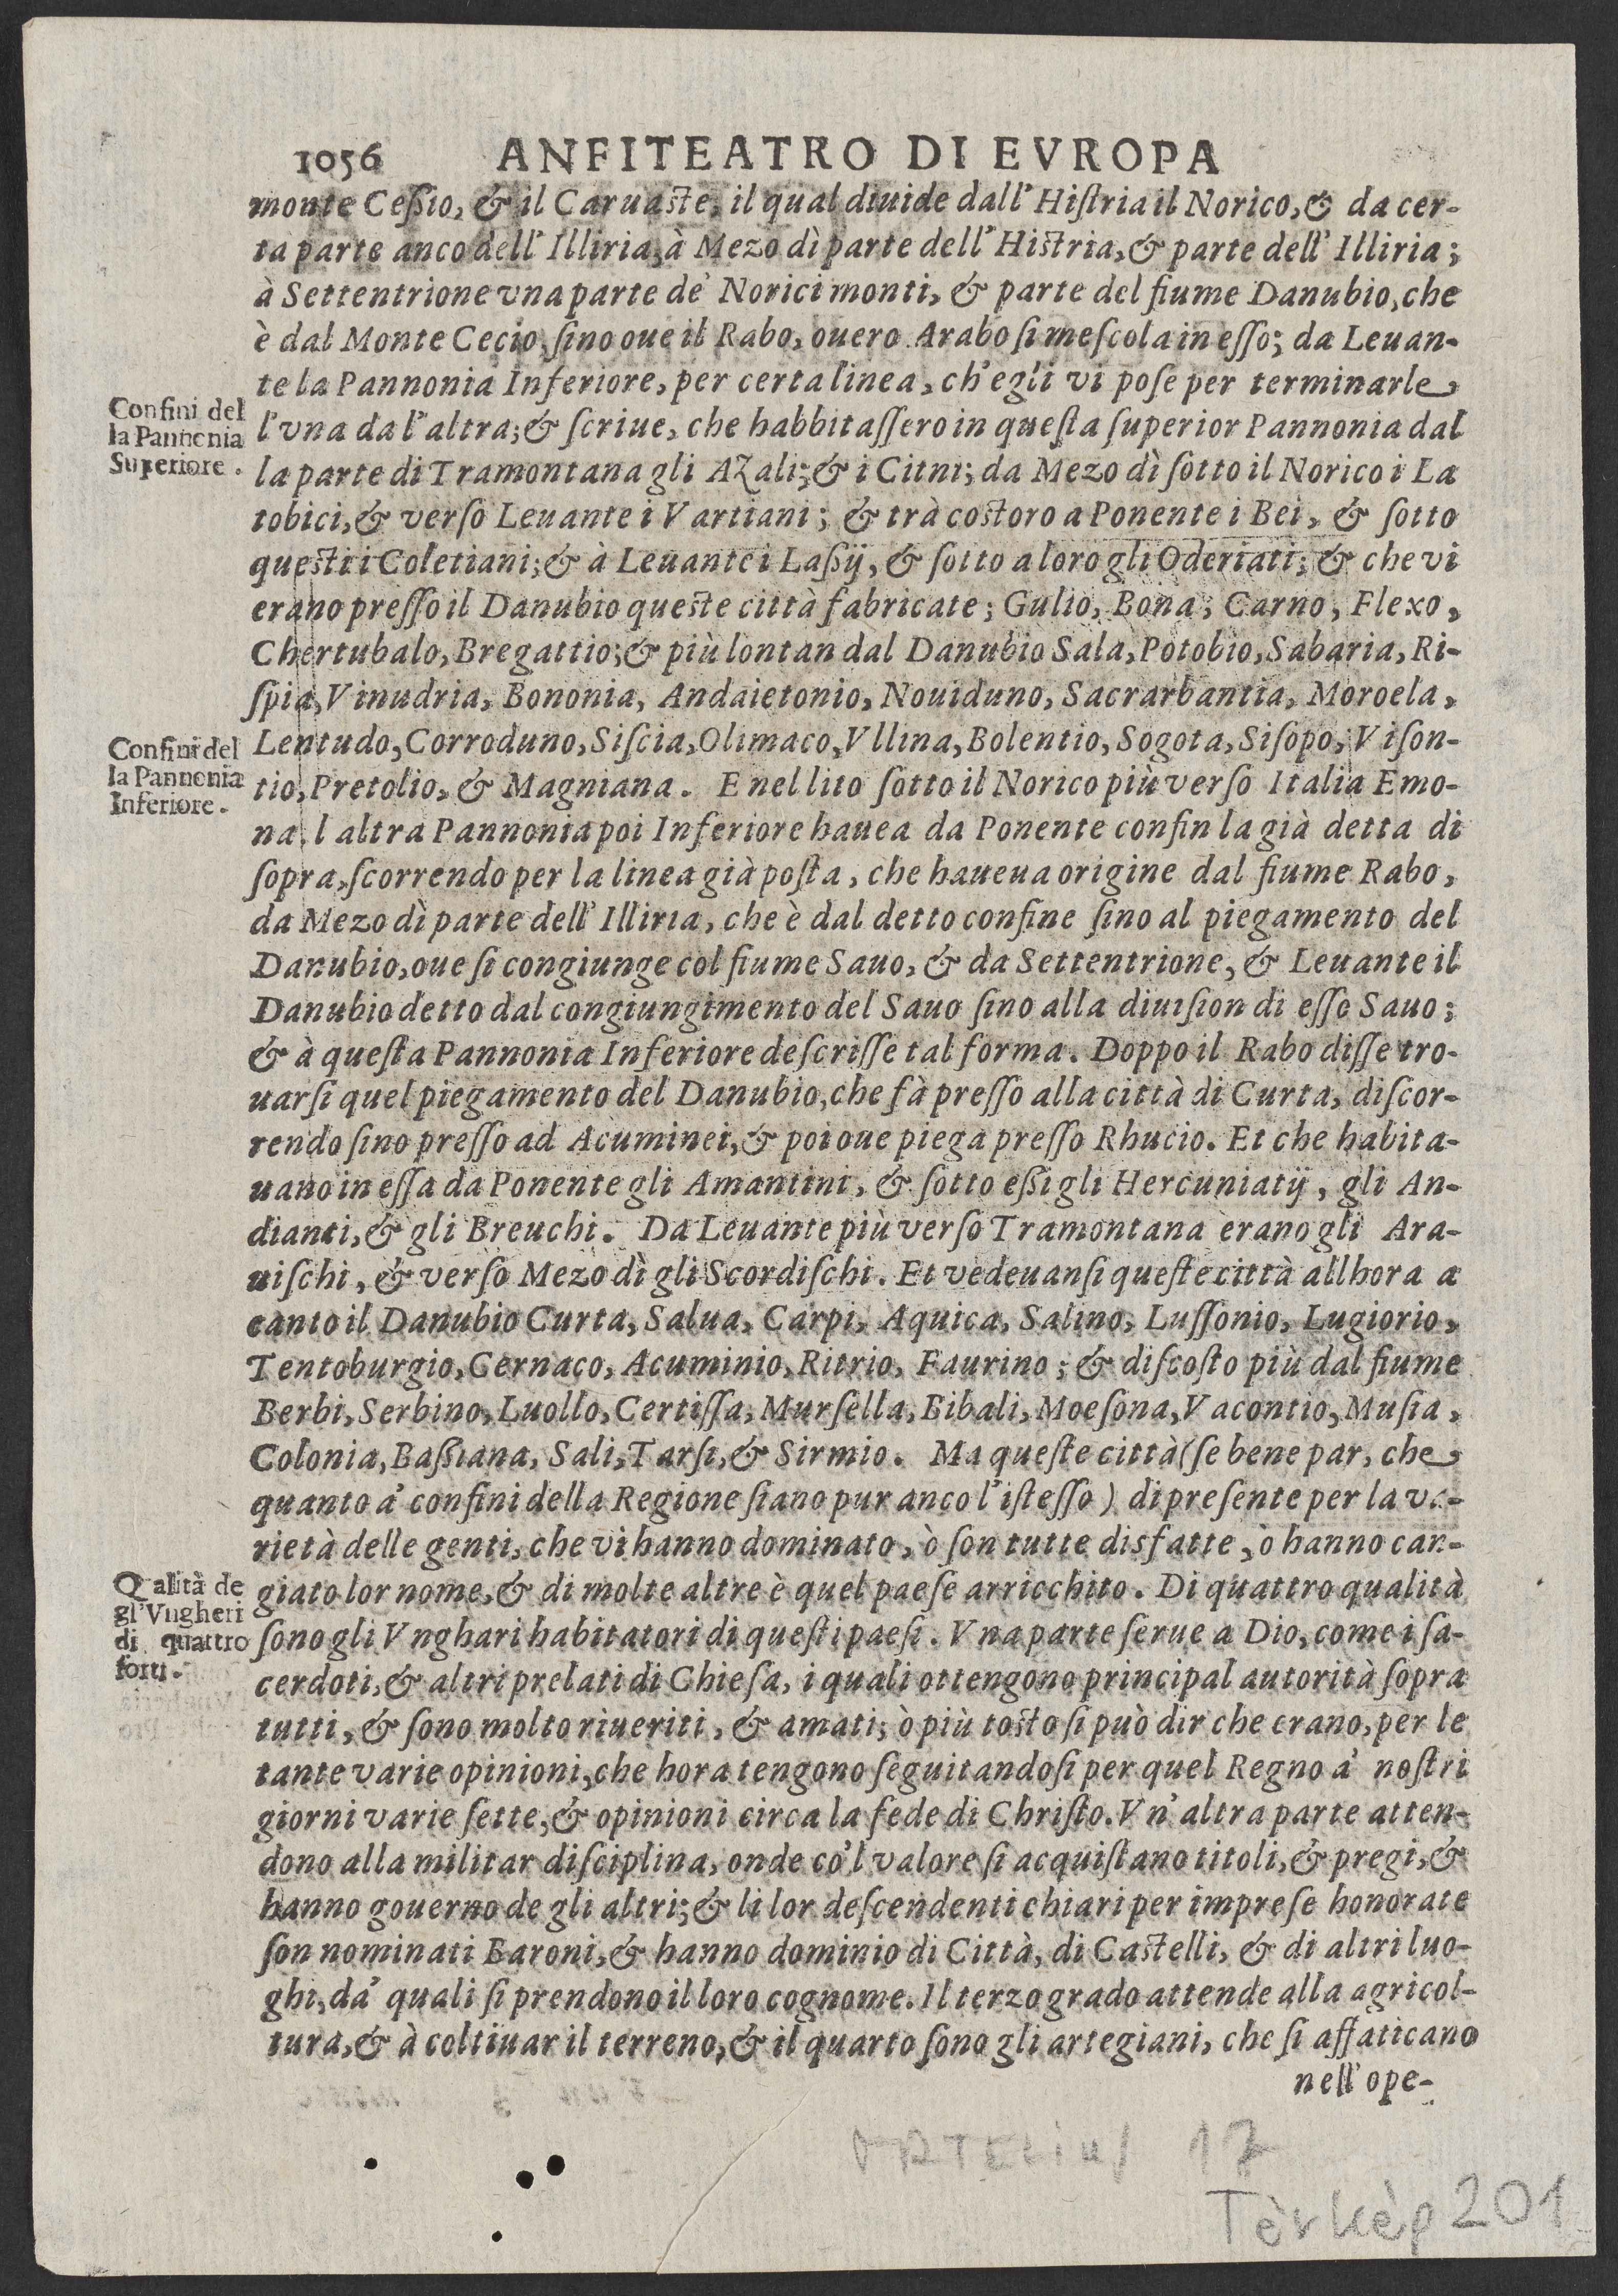 1056 ANFITEATRO DI EVROPA
monte Ceſſio, & il Caruaſte, il qual diuide dall' Hiſtria il Norico, & da cer-
ta parte anco dell' Illiria, à Mezo dì parte dell' Hiſtria, & parte dell' Illiria;
à Settentrione vna parte de' Norici monti, & parte del fiume Danubio, che
è dal Monte Cecio, ſino oue il Rabo, ouero Arabo ſi meſcola in eſſo; da Leuan-
te la Pannonia Inferiore, per certa linea, ch'egli vi poſe per terminarle
Confini del
la Pannonia
Superiore.
l'vna da l'altra; & ſcriue, che habbitaſſero in queſta ſuperior Pannonia dal
la parte di Tramontana gli Azali; & i Citni; da Mezo dì ſotto il Norico i La
tobici, & verſo Leuante i Vartiani; & trà coſtoro a Ponente i Bei, & ſotto
queſti i Coletiani; & à Leuante i Laſſij, & ſotto a loro gli Oderiati; & che vi
erano preſſo il Danubio queſte città fabricate; Gulio, Bona, Carno, Flexo,
Chertubalo, Bregattio; & più lontan dal Danubio Sala, Potobio, Sabaria, Ri-
ſpia, Vinudria, Bononia, Andaietonio, Nouiduno, Sacrarbantia, Moroela,
Confini del
la Pannonia
Inferiore.
Lentudo, Corroduno, Siſcia, Olimaco, Vllina, Bolentio, Sogota, Siſopo, Viſon-
tio, Pretolio, & Magniana. E nel lito ſotto il Norico più verſo Italia Emo-
na. l altra Pannonia poi Inferiore hauea da Ponente confin la già detta di
ſopra, ſcorrendo per la linea già poſta, che haueua origine dal fiume Rabo,
da Mezo dì parte dell' Illiria, che è dal detto confine ſino al piegamento del
Danubio, oue ſi congiunge col fiume Sauo, & da Settentrione, & Leuante il
Danubio detto dal congiungimento del Sauo ſino alla diuiſion di eſſo Sauo;
& à queſta Pannonia Inferiore deſcriſſe tal forma. Doppo il Rabo diſſe tro-
uarſi quel piegamento del Danubio, che fà preſſo alla città di Curta, diſcor-
rendo ſino preſſo ad Acuminei, & poi oue piega preſſo Rhucio. Et che habita-
uano in eſſa da Ponente gli Amantini, & ſotto eſſi gli Hercuniatij, gli An-
dianti, & gli Breuchi. Da Leuante più verſo Tramontana erano gli Ara-
uiſchi, & verſo Mezo dì gli Scordiſchi. Et vedeuanſi queſte città allhora a
canto il Danubio Curta, Salua, Carpi, Aquica, Salino, Luſſonio, Lugiorio,
Tentoburgio, Cernaco, Acuminio, Ritrio, Faurino; & diſcoſto più dal fiume
Berbi, Serbino, Luollo, Certiſſa, Murſella, Bibali, Moeſona, Vacontio, Muſia,
Colonia, Baſſiana, Sali, Tarſi, & Sirmio. Ma queſte città (ſe bene par, che
quanto a' confini della Regione ſiano pur anco l'iſteſſo) di preſente per la va-
rietà delle genti, che vi hanno dominato, ò ſon tutte disfatte, ò hanno can-
Qalità de
gl'Vngheri
di quattro
ſorti.
giato lor nome, & di molte altre è quel paeſe arricchito. Di quattro qualità
ſono gli Vnghari habitatori di queſti paeſi. Vna parte ſerue a Dio, come i ſa-
cerdoti, & altri prelati di Chieſa, i quali ottengono principal autorità ſopra
tutti, & ſono molto riueriti, & amati; ò più toſto ſi può dir che erano, per le
tante varie opinioni, che hora tengono ſeguitandoſi per quel Regno a' noſtri
giorni varie ſette, & opinioni circa la fede di Chriſto. Vn' altra parte atten-
dono alla militar diſciplina, onde co'l valore ſi acquiſtano titoli, & pregi, &
hanno gouerno de gli altri; & li lor deſcendenti chiari per impreſe honorate
ſon nominati Baroni, & hanno dominio di Città, di Caſtelli, & di altri luo-
ghi, da' quali ſi prendono il loro cognome. Il terzo grado attende alla agricol-
tura, & à coltiuar il terreno, & il quarto ſono gli artegiani, che ſi affaticano
nell' ope-
ORTELius 17
Tèrkèp 201